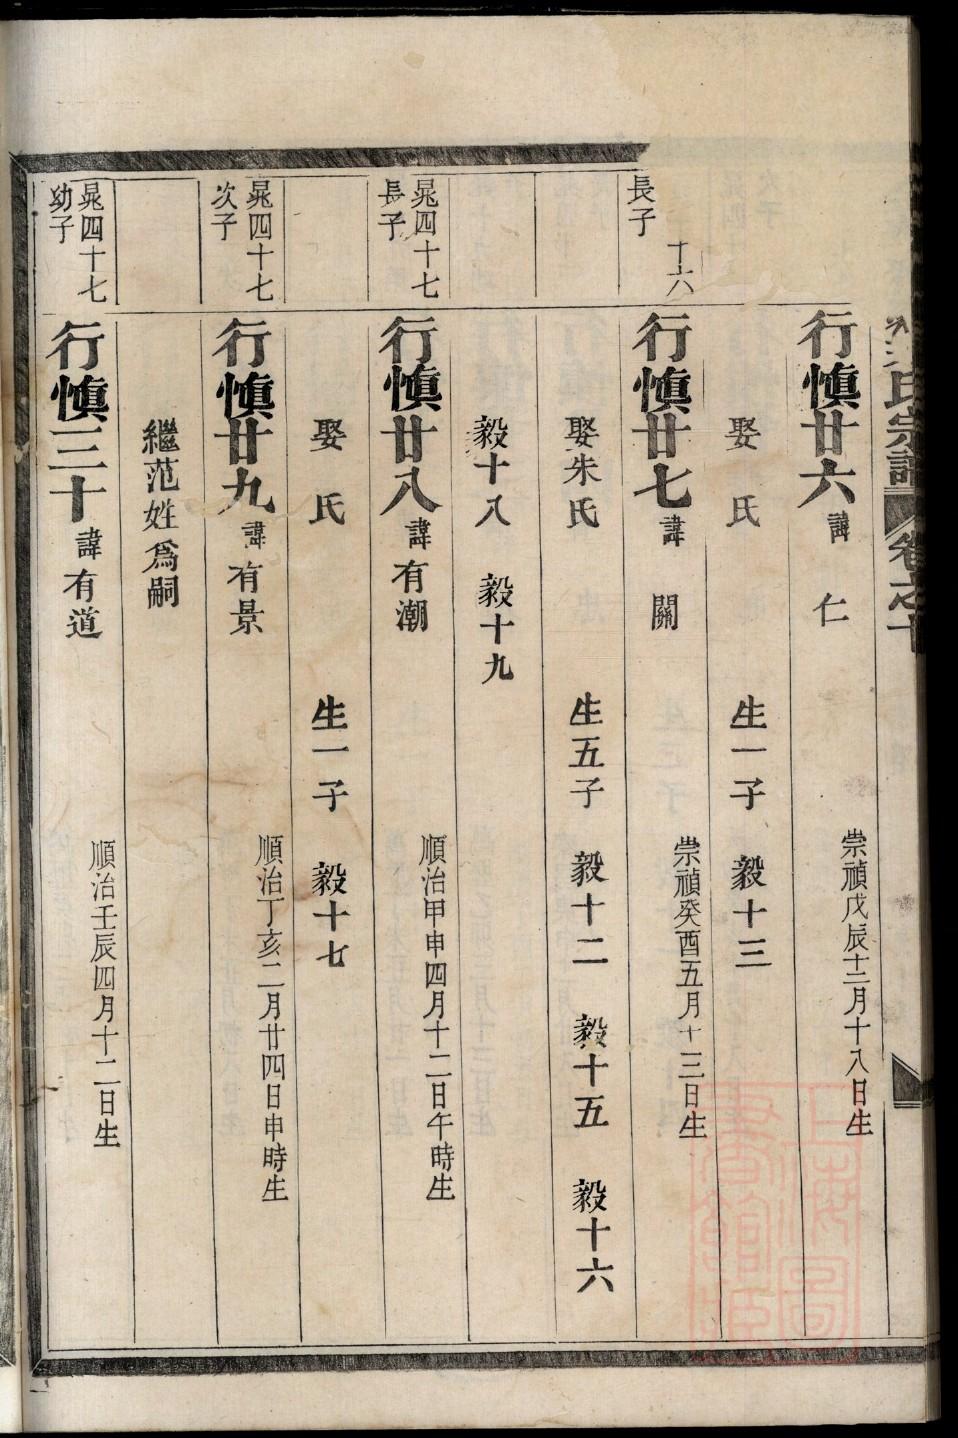 氏宗譜 卷之十
行慎廿六 諱 仁 崇禎戊辰十二月十八日生
娶 氏 生一子 毅十三
十六
長子
行慎廿七 諱 關 崇禎癸酉五月十三日生
娶朱氏 生五子 毅十二 毅十五 毅十六
毅十八 毅十九
晁四十七
長子
行慎廿八 諱有潮 順治甲申四月十二日午時生
娶 氏 生一子 毅十七
晁四十七
次子
行慎廿九 諱有景 順治丁亥二月廿四日申時生
繼范姓為嗣
晁四十七
幼子
行慎三十 諱有道 順治壬辰四月十二日生